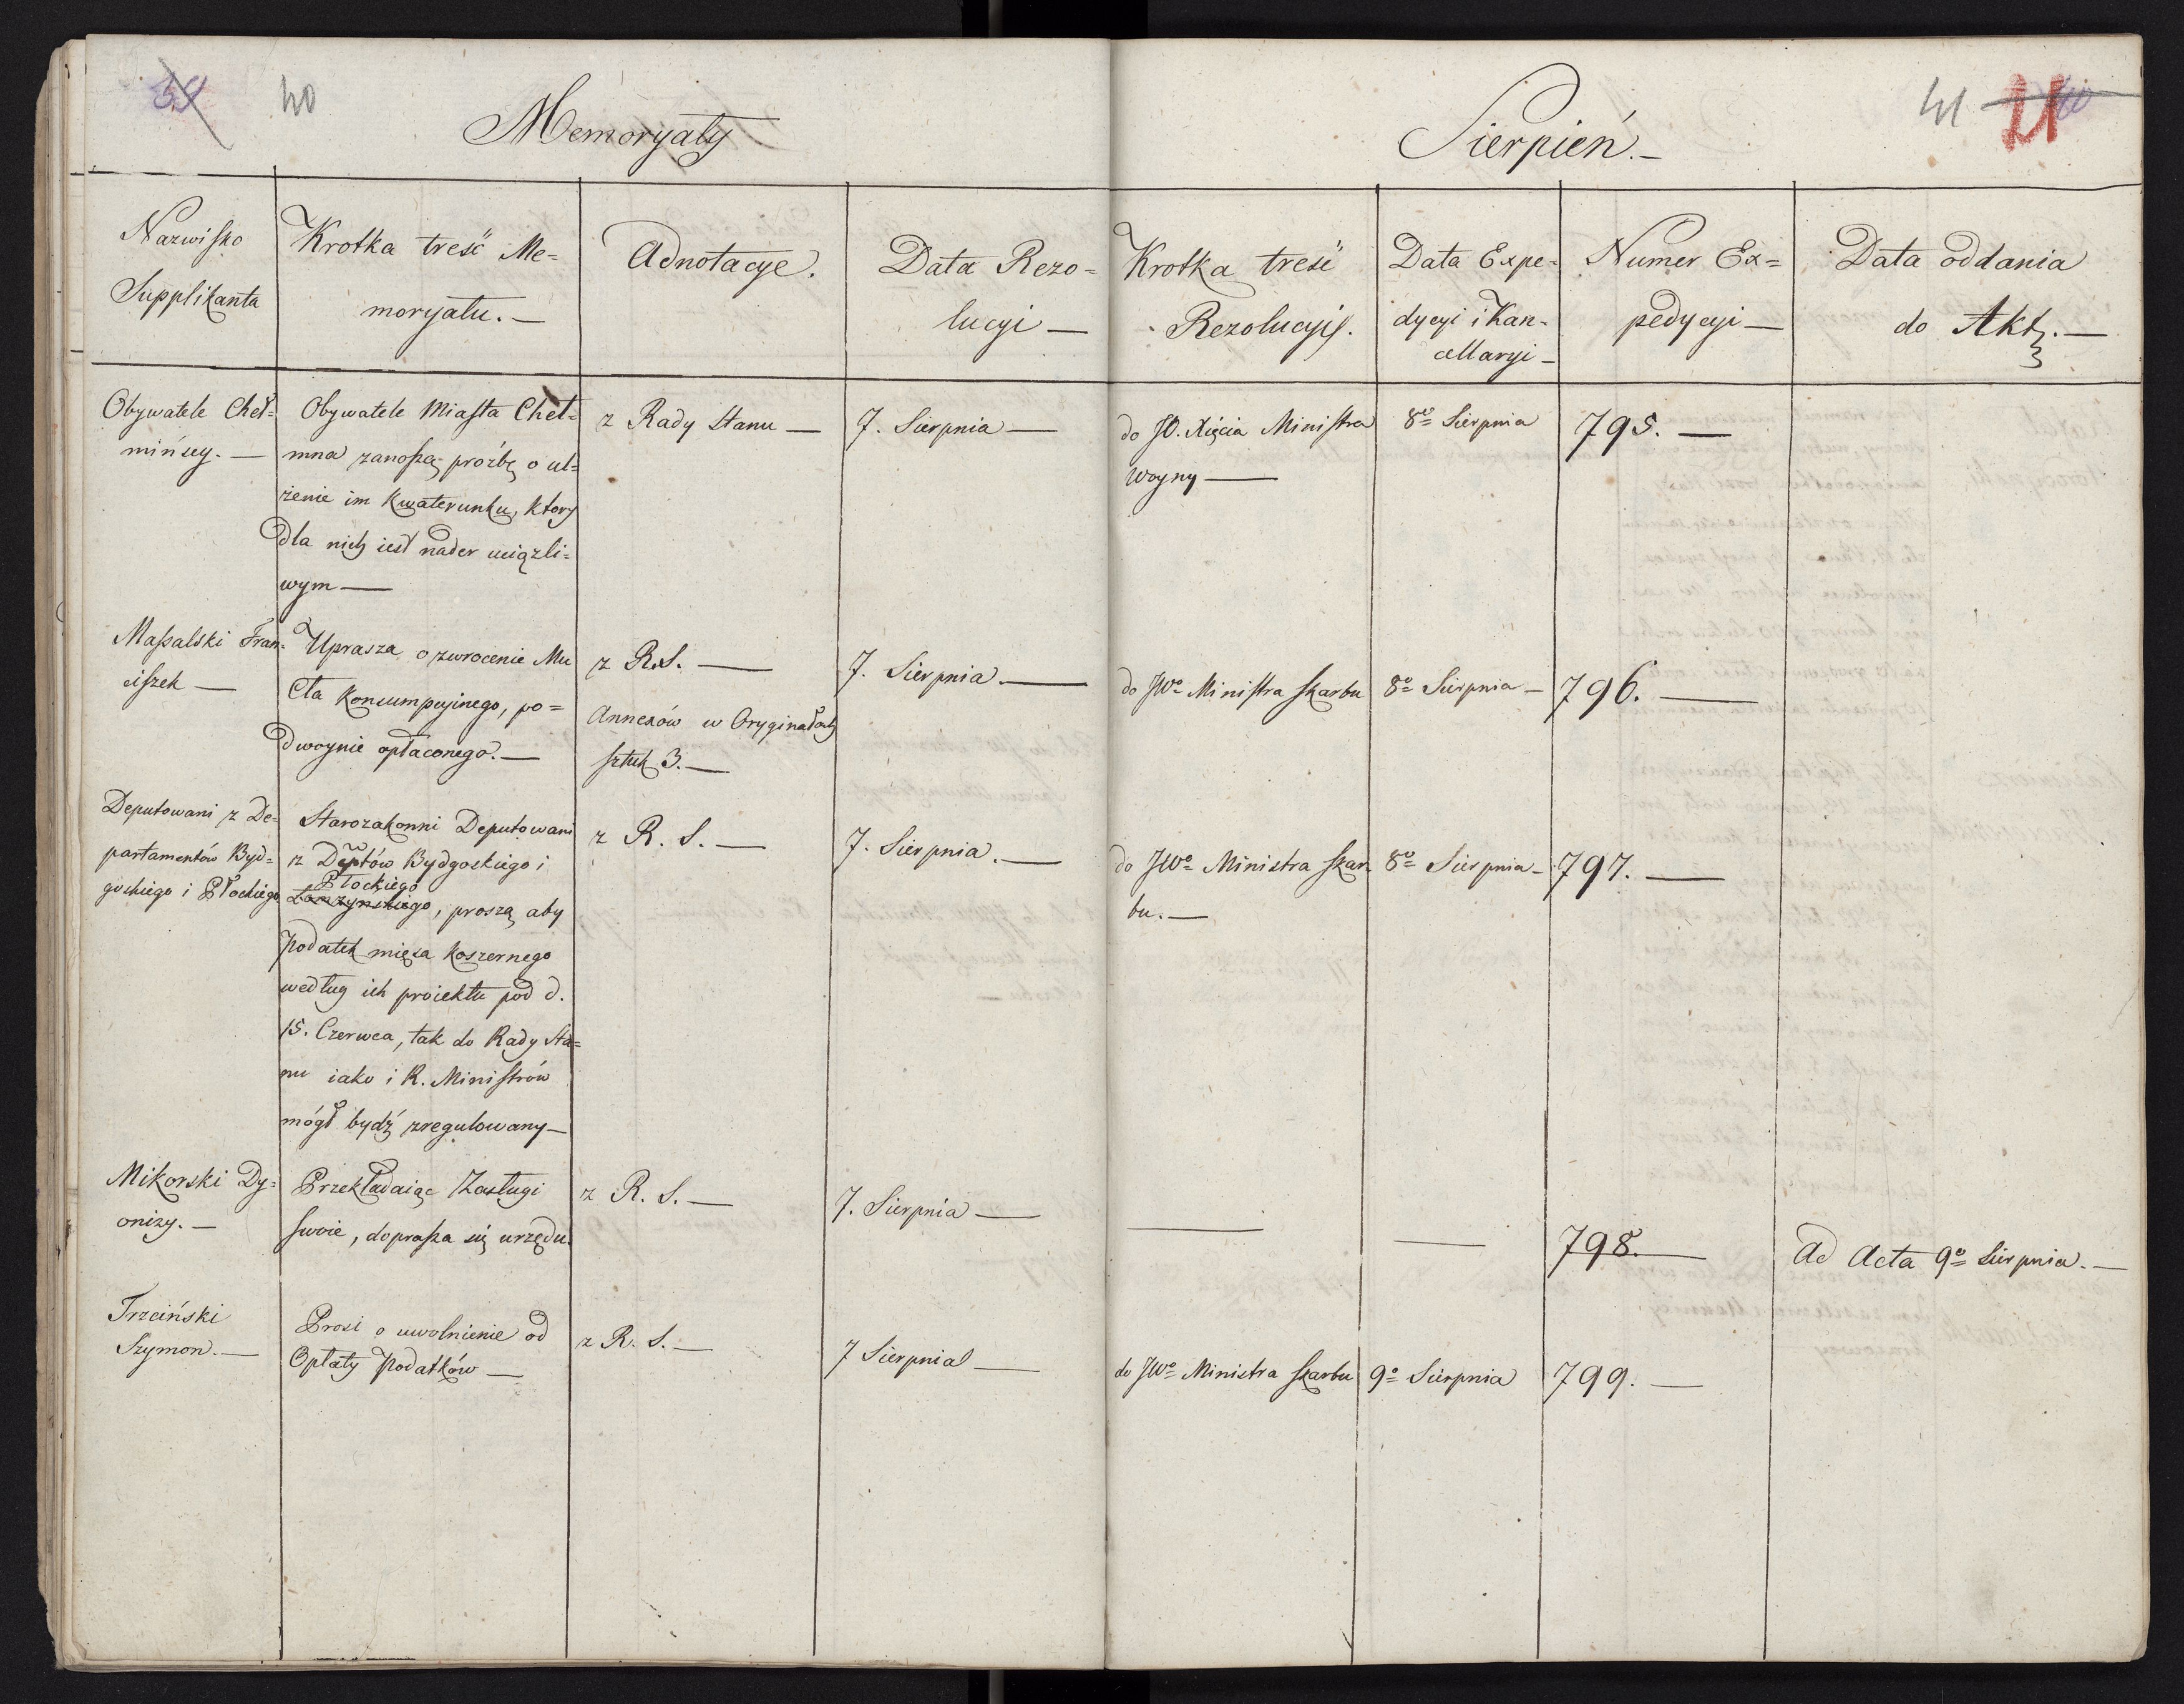 40
Memoryały
Sierpień.—
41
21
Nazwisko
Supplikanta
Krotka treść Me=
moryatu.—
Adnotacye.
Data Rezo=
lucyi—
Krotka treść
Rezolucyis.
Data Expe=
dycyi i Kan=
cellaryi—
Numer Ex=
pedycyi—
Data oddania
do Akt.—
Obywatele Cheł=
mińscy.—
Obywatele Miasta Cheł=
mna zanoszą proźbę o ul=
żenie im Kwaterunku, ktory
dla nich iest nader uciążli=
wym—
z Rady Stanu—
7. Sierpnia—
do JO. Xięcia Ministra
Woyny—
8o Sierpnia
795.—
Massalski Fran=
ciszek—
Uprasza o zwrocenie Mu
Cła Konsumpcyinego, po=
dwoynie opłaconego.—
z R.S.—
Annexów w Oryginałach
sztuk 3.—
7. Sierpnia.—
do JWo Ministra Skarbu
8o Sierpnia—
796.—
Deputowani z De=
partamentów Byd=
goskiego i Płockiego
Starozakonni Deputowani
z Deptów Bydgoskiego i
Płockiego
Łomżynskiego, proszą aby
Podatek mięsa Koszernego
według ich proiektu pod d.
15. Czerwca, tak do Rady Sta=
nu iako i R. Ministrów
mógł bydź zregulowany—
z R. S.—
7. Sierpnia.—
do JWo Ministra Skar=
bu.—
8o Sierpnia—
797.—
Mikorski Dy=
onizy.—
Przekładaiąc Zasługi
swoie, doprasza się urzędu.
z R. S.—
7. Sierpnia—
—
—
798.—
Ad Acta 9o Sierpnia.—
Trzciński
Szymon.—
Prosi o uwolnienie od
Opłaty Podatków—
z R. S.—
7 Sierpnia—
do JWo Ministra Skarbu
9o Sierpnia
799.—